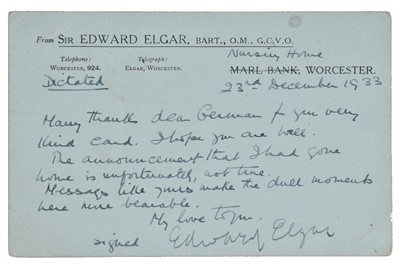 From SIR EDWARD ELGAR, BART., O.M., G.C.V.O.
Nursing Home
Telephone: Telegraph:
WORCESTER, 924. ELGAR, WORCESTER. MARL BANK, WORCESTER.
Dictated 23rd December 1933
Many thanks dear German for your very
kind card. I hope you are well.
The announcement that I had gone
home is unfortunately, not true.
Messages like yours make the dull moments
here more bearable.
My love to you.
signed Edward Elgar